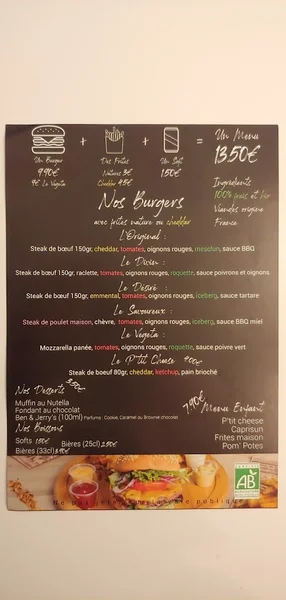 Un Burger + Des Frites + Un Soft = Un Menu
9.90€ Nature 3€ 1.50€ 13.50€
9€ Le Végéta Cheddar 4.5€
Ingrédients
100% frais et bio
Viandes origine
France
Nos Burgers
avec frites nature ou cheddar
L'Original :
Steak de bœuf 150gr, cheddar, tomates, oignons rouges, mesclun, sauce BBQ
Le Divin :
Steak de bœuf 150gr, raclette, tomates, oignons rouges, roquette, sauce poivrons et oignons
Le Désiré :
Steak de bœuf 150gr, emmental, tomates, oignons rouges, iceberg, sauce tartare
Le Savoureux :
Steak de poulet maison, chèvre, tomates, oignons rouges, iceberg, sauce BBQ miel
Le Végéta :
Mozzarella panée, tomates, oignons rouges, roquette, sauce poivre vert
Le P'tit Cheese
Steak de boeuf 80gr, cheddar, ketchup, pain brioché
Nos Desserts
Muffin au Nutella
Fondant au chocolat
Ben & Jerry's (100ml) Parfums : Cookie, Caramel ou Brownie chocolat
Nos Boissons
Softs 1.50€ Bières (25cl)
Bières (33cl)
7.90€ Menu Enfant
P'tit cheese
Caprisun
Frites maison
Pom' Potes
Ne pas jeter sur la voie publique
AB